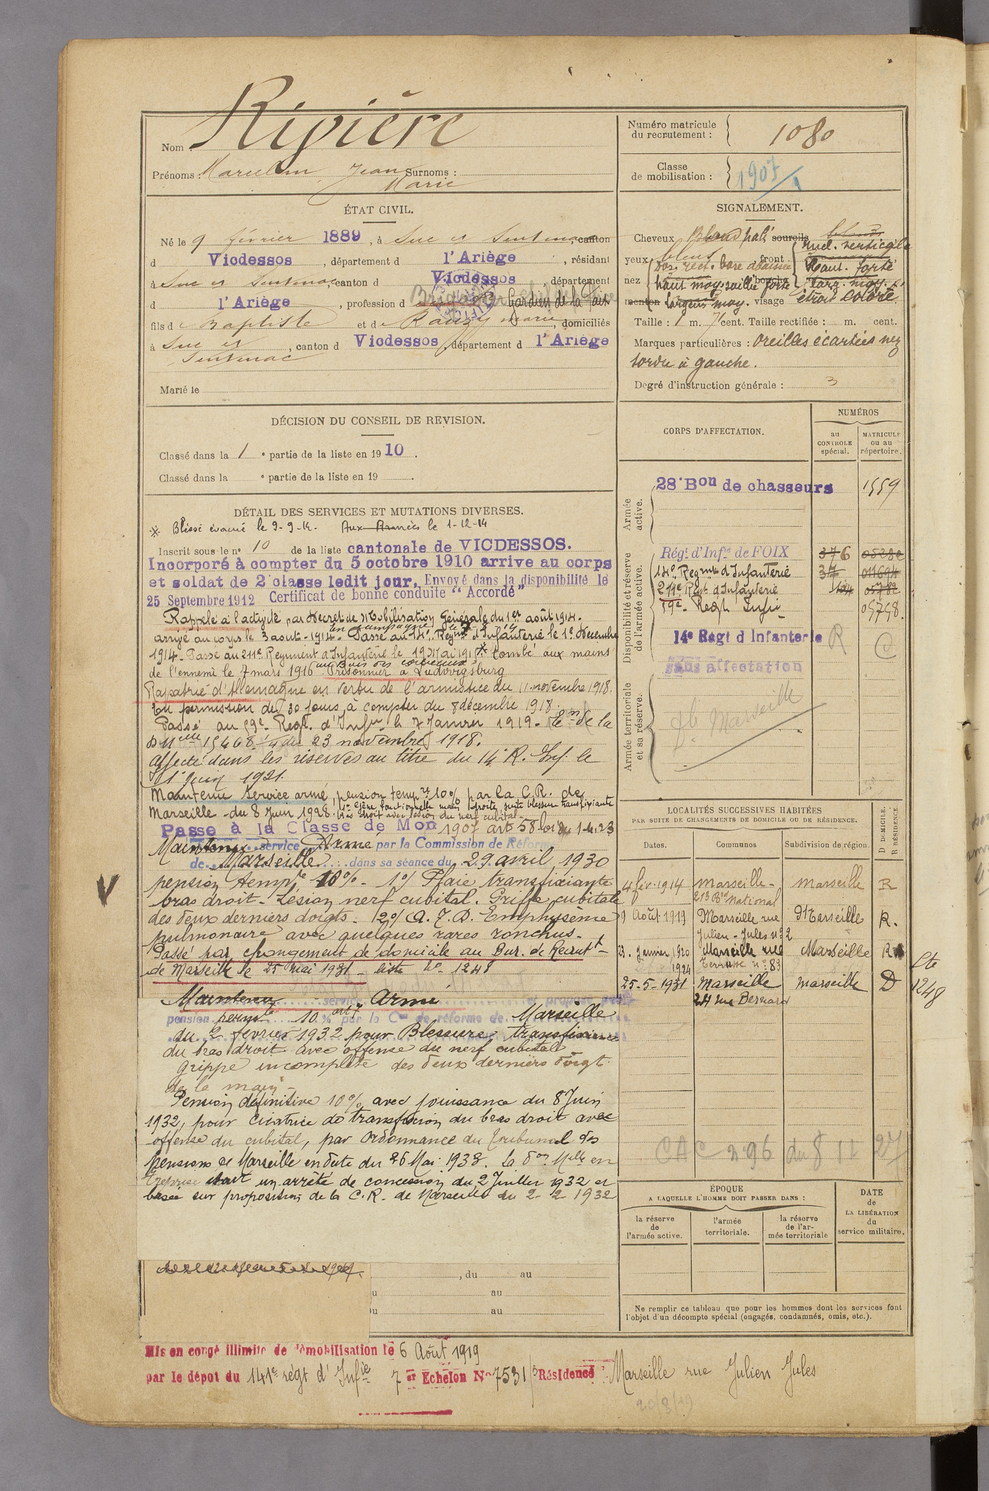 Nom Ripière
Numéro matricule du recrutement : 1080
Prénoms : Marcelin Jean Marie Surnoms :
Classe de mobilisation : 1907
ÉTAT CIVIL.
Né le 9 février 1889, à Suc et Sentenac, canton
d Vicdessos, département d l'Ariège, résidant
à Suc et Sentenac canton d Vicdessos département
d l'Ariège, profession d Gardien de la paix
fils d Baptiste et d Rauzy marie, domiciliés
à Suc et Sentenac, canton d Vicdessos, département d l'Ariège
Marié le
SIGNALEMENT.
Cheveux Blond sourcils
yeux bleus front
nez
haut moy. saillie forte
largeur moy. visage
Taille : 1 m. cent. Taille rectifiée : m. cent.
Marques particulières : oreilles écartées nez
tordu à gauche.
Degré d'instruction générale : 3
DÉCISION DU CONSEIL DE REVISION.
Classé dans la 1 e partie de la liste en 1910.
Classé dans la e partie de la liste en 19
CORPS D'AFFECTATION.
NUMÉROS
au CONTROLE spécial.
MATRICULE ou au répertoire.
Armée active.
28e Bon de chasseurs 1559
Disponibilité et réserve de l'armée active.
Régt d'Infie de FOIX
14e Regmt d'Infanterie
211e Régt d'Infanterie
19e Regt Infie
14e Régt d'Infanterie R
sans affectation
Armée territoriale et sa réserve.
Marseille
DÉTAIL DES SERVICES ET MUTATIONS DIVERSES.
* Blessé évacué le 9-9-14. Aux Armées le 1-12-14
Inscrit sous le n° 10 de la liste cantonale de VICDESSOS.
Incorporé à compter du 5 octobre 1910 arrive au corps
et soldat de 2e classe ledit jour, Envoyé dans la disponibilité le
25 Septembre 1912 Certificat de bonne conduite "Accordé"
Rappelé à l'activité par Décret de Mobilisation Générale du 1er août 1914.
arrivé au corps le 3 août 1914. Passé au 14e Régmt d'Infanterie le 1er Décembre
1914. Passé au 211e Regiment d'Infanterie le 19 mai 1915 * tombé aux mains
de l'ennemi le 7 mars 1916 au Bois des corbeaux Prisonnier à Ludwigsburg
Rapatrié d'Allemagne en vertu de l'armistice du 11 novembre 1918.
En permission de 30 jours à compter du 8 décembre 1918.
Passé au 19e Regt d'Infie le 7 Janvier 1919. de la
du 23 novembre 1918.
affecté dans les réserves au titre du 14e R. Inf. le
1921.
Maintenu service armé, pension tempre 10% par la C.R. de
Marseille du 8 Juin 1928
Passé à la Classe de Mon 1907 art 58 loi du 1-4-23
Maintenu service Armé par la Commission de Réforme
de Marseille dans sa séance du 29 avril 1930
pension tempre 10% - 1°/ Plaie transfixiante
bras droit - Lésion nerf cubital. Griffe cubitale
des deux derniers doigts. 2°/ Emphysème
pulmonaire avec quelques rares ronchus.
Passé par changement de domicile au Bur. de Recrutt
de Marseille le 25 mai 1931 - liste N° 1248
Maintenu service armé et proposé pour
pension permte 10% par la Con de réforme de Marseille
du 2 février 1932 pour Blessure transfixiante
du bras droit avec offense du nerf cubital
grippe incomplète des deux derniers doigts
de la main
Pension définitive 10% avec jouissance du 8 Juin
1932, pour cicatrice de transfixion du bras droit avec
offense du cubital, par Ordonnance du Tribunal des
Pensions de Marseille en date du 26 Mai 1938.
un arrêté de concession du 2 Juillet 1932 et
basée sur proposition de la C.R. de Marseille du 2-2-1932
LOCALITÉS SUCCESSIVES HABITÉES
PAR SUITE DE CHANGEMENTS DE DOMICILE OU DE RÉSIDENCE.
Dates. Communes Subdivision de région. D DOMICILE. R RÉSIDENCE.
4 fév. 1914 Marseille - 213 Bd National Marseille R
9 Août 1919 Marseille rue Julien Jules n° 2 Marseille R.
3 Janvier 1920 Marseille rue Marseille R
1924
25-5-1931 Marseille 24 rue Bernard Marseille D
Lte 1248
CAC n° 96 du 8 11 27
ÉPOQUE
A LAQUELLE L'HOMME DOIT PASSER DANS :
la réserve de l'armée active.
l'armée territoriale.
la réserve de l'armée territoriale
DATE de LA LIBÉRATION du service militaire.
, du au
u au
u au
Ne remplir ce tableau que pour les hommes dont les services font
l'objet d'un décompte spécial (engagés, condamnés, omis, etc.).
Mis en congé illimité de démobilisation le 6 Août 1919
par le dépot du 141e régt d'Infie 7e Echelon N° 7531/3 Résidence : Marseille rue Julien Jules
20/8/19